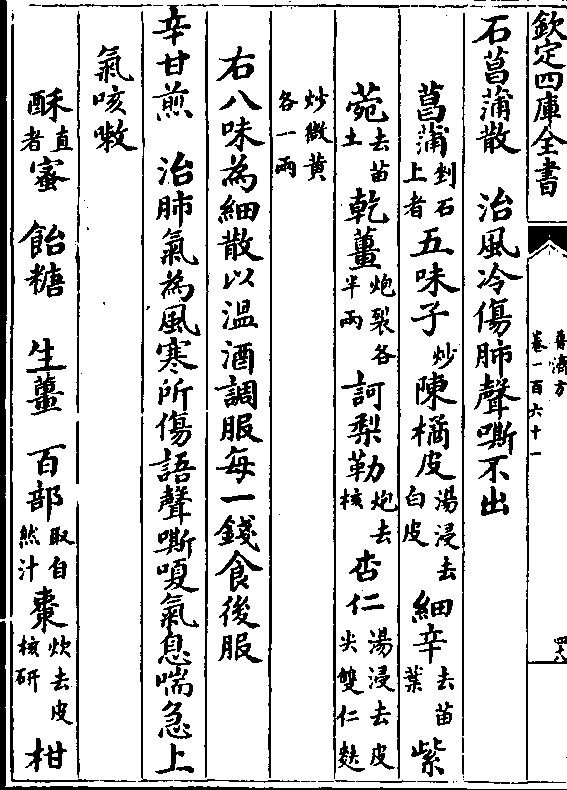 欽定四庫全書
普濟方
卷一百六十一
四八
石菖蒲散 治風冷傷肺聲嘶不出
菖蒲剉石上者五味子炒陳橘皮湯浸去白皮細辛去苗葉紫
菀去苗土乾薑炮裂各半兩訶梨勒炮去核杏仁湯浸去皮尖雙仁麩
炒微黄各一兩
右八味為細散以温酒調服每一錢食後服
辛甘煎 治肺氣為風寒所傷語聲嘶嗄氣息喘急上
氣咳嗽
酥直者蜜 飴糖 生薑 百部取自然汁棗炊去皮核研柑